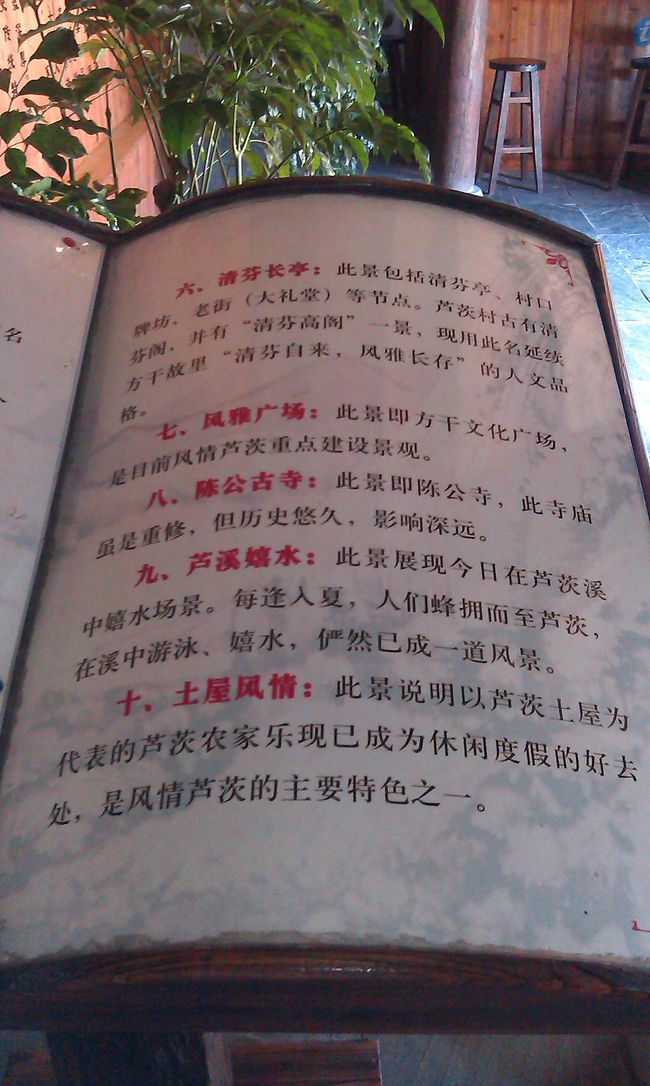 六、清芬长亭：此景包括清芬亭、村口
牌坊、老街（大礼堂）等节点。芦茨村古有清
芬阁，并有“清芬高阁”一景，现用此名延续
方干故里“清芬自来，风雅长存”的人文品
格。
七、风雅广场：此景即方干文化广场，
是目前风情芦茨重点建设景观。
八、陈公古寺：此景即陈公寺，此寺庙
虽是重修，但历史悠久，影响深远。
九、芦溪嬉水：此景展现今日在芦茨溪
中嬉水场景。每逢入夏，人们蜂拥而至芦茨，
在溪中游泳、嬉水，俨然已成一道风景。
十、土屋风情：此景说明以芦茨土屋为
代表的芦茨农家乐现已成为休闲度假的好去
处，是风情芦茨的主要特色之一。
名